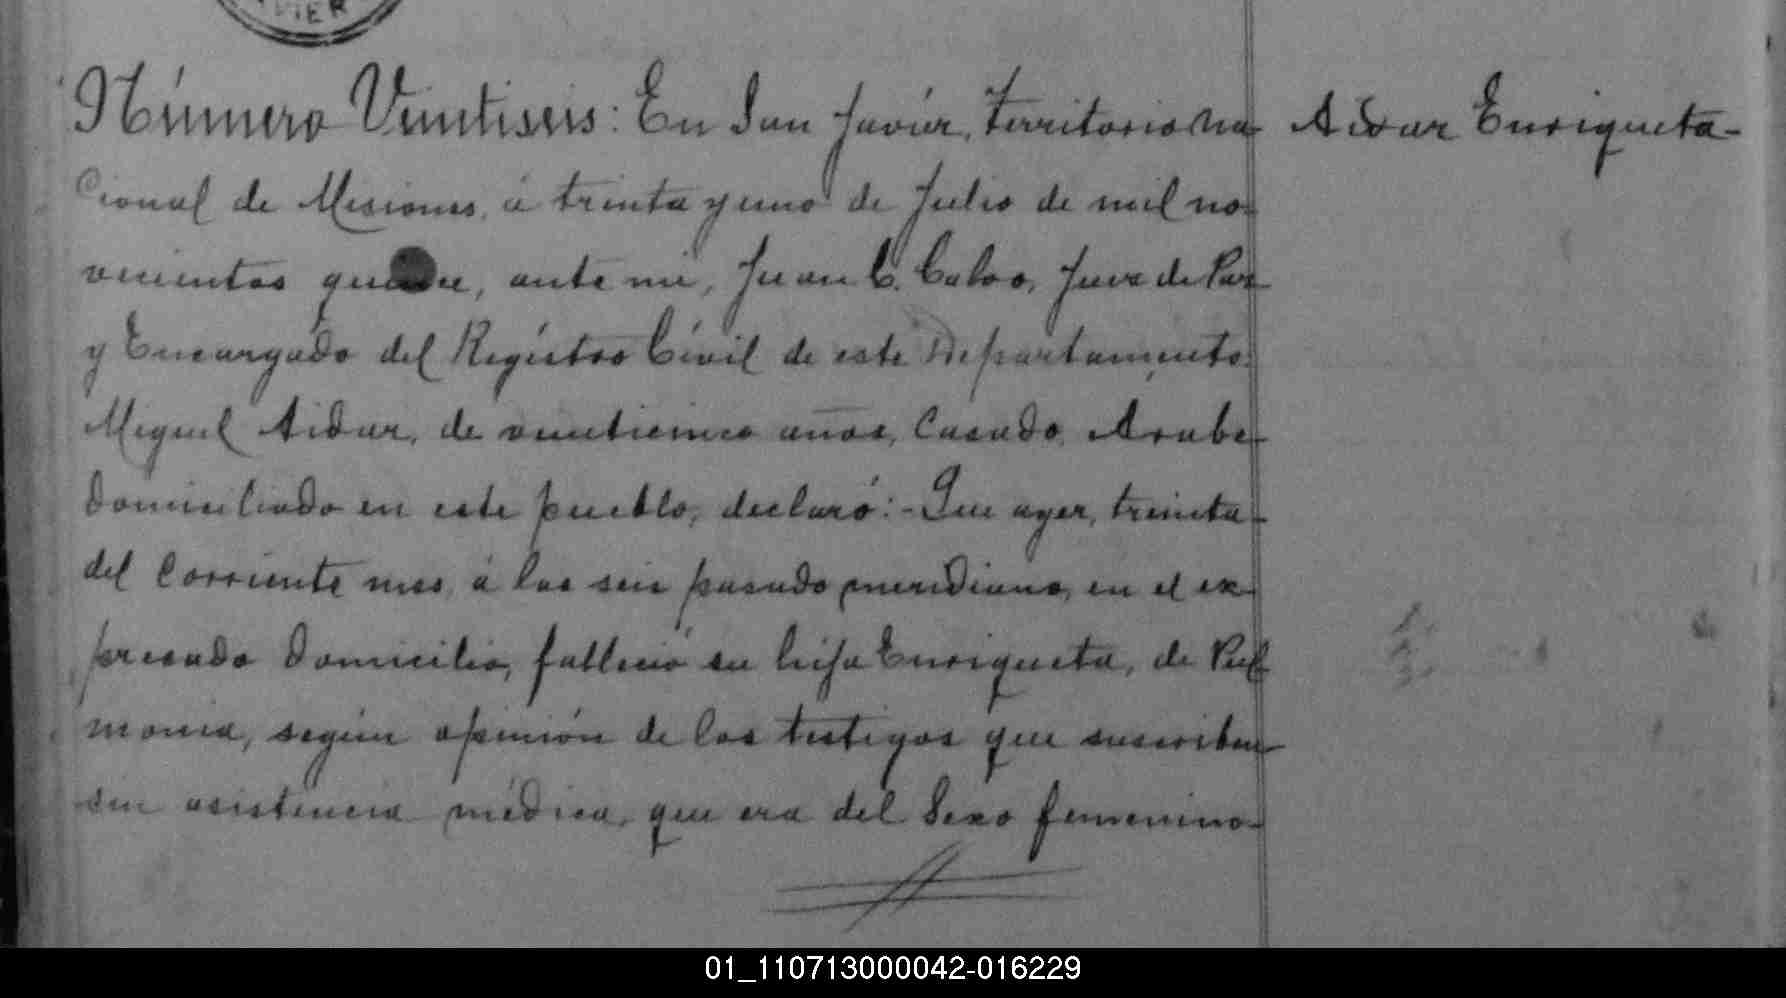 VIER
Número Veintiseis: En San Javier, Territorio Na
Aidar Enriqueta-
cional de Misiones, á treinta y uno de Julio de mil no-
vecientos quince, ante mi, Juan C. Calvo, Juez de Paz
y Encargado del Registro Civil de este Departamento
Miguel Aidar, de veinticinco años, Casado, Arabe-
domiciliado en este pueblo, declaró:- Que ayer, treinta-
del corriente mes, á las seis pasado meridiano, en el ex-
presado domicilio, falleció su hija Enriqueta, de Pul
monia, según opinión de los testigos que suscriben
sin asistencia médica, que era del Sexo femenino-
01_110713000042-016229